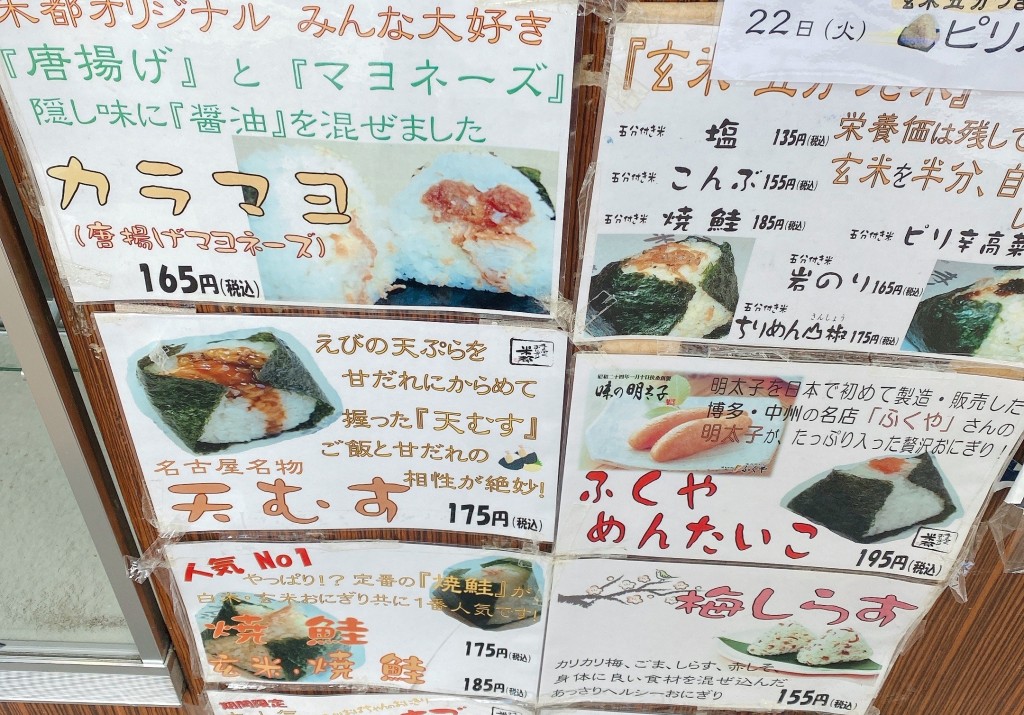 米都オリジナル みんな大好き
『唐揚げ』と『マヨネーズ』
隠し味に『醤油』を混ぜました
カラマヨ
(唐揚げマヨネーズ)
165円(税込)
えびの天ぷらを
甘だれにからめて
握った『天むす』
ご飯と甘だれの
相性が絶妙!
名古屋名物
天むす
175円(税込)
人気 No1
やっぱり!? 定番の『焼鮭』が
白米・玄米おにぎり共に1番人気です!
焼鮭
175円(税込)
玄米・焼鮭
185円(税込)
期間限定
22日(火)
ピリ
『玄米
栄養価は残して
玄米を半分、自
五分付き米 塩 135円(税込)
五分付き米 こんぶ 155円(税込)
五分付き米 焼鮭 185円(税込)
五分付き米 ピリ辛高菜
五分付き米 岩のり 165円(税込)
五分付き米 ちりめん山椒 175円(税込)
さんしょう
味の明太子
ふくや
明太子を日本で初めて製造・販売した
博多・中州の名店「ふくや」さんの
明太子が、たっぷり入った贅沢おにぎり!
ふくや
めんたいこ
195円(税込)
梅しらす
カリカリ梅、ごま、しらす、赤しそ、
身体に良い食材を混ぜ込んだ
あっさりヘルシーおにぎり
155円(税込)